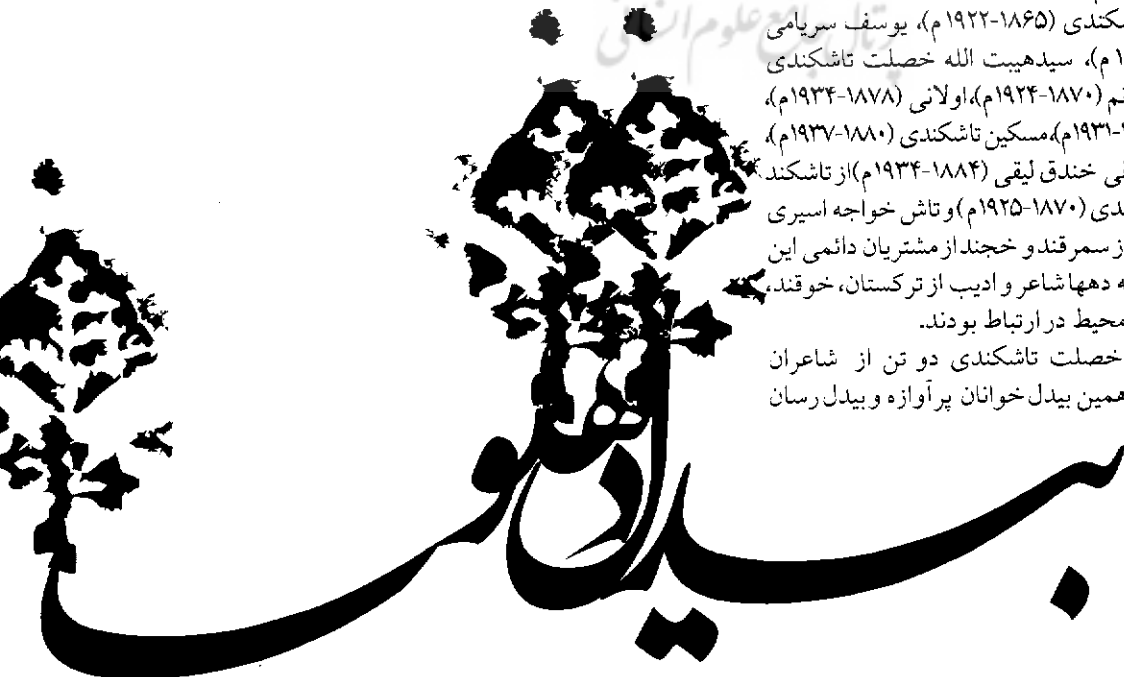 پرتال جامع علوم انسانی
شکندی (۱۸۶۵-۱۹۲۲ م)، یوسف سریامی
۱ م)، سیدهیبت الله خصلت تاشکندی
نم (۱۸۷۰-۱۹۲۴م)،اولانی (۱۸۷۸-۱۹۳۴م)،
-۱۹۳۱م)،مسکین تاشکندی (۱۸۸۰-۱۹۳۷م)،
نی خندق لیقی (۱۸۸۴-۱۹۳۴م)از تاشکند
ندی (۱۸۷۰-۱۹۲۵م) و تاش خواجه اسیری
ز سمرقند و خجند از مشتریان دائمی این
ه دهها شاعر و ادیب از ترکستان، خوقند،
محیط در ارتباط بودند.
خصلت تاشکندی دو تن از شاعران
همین بیدل خوانان پرآوازه و بیدل رسان